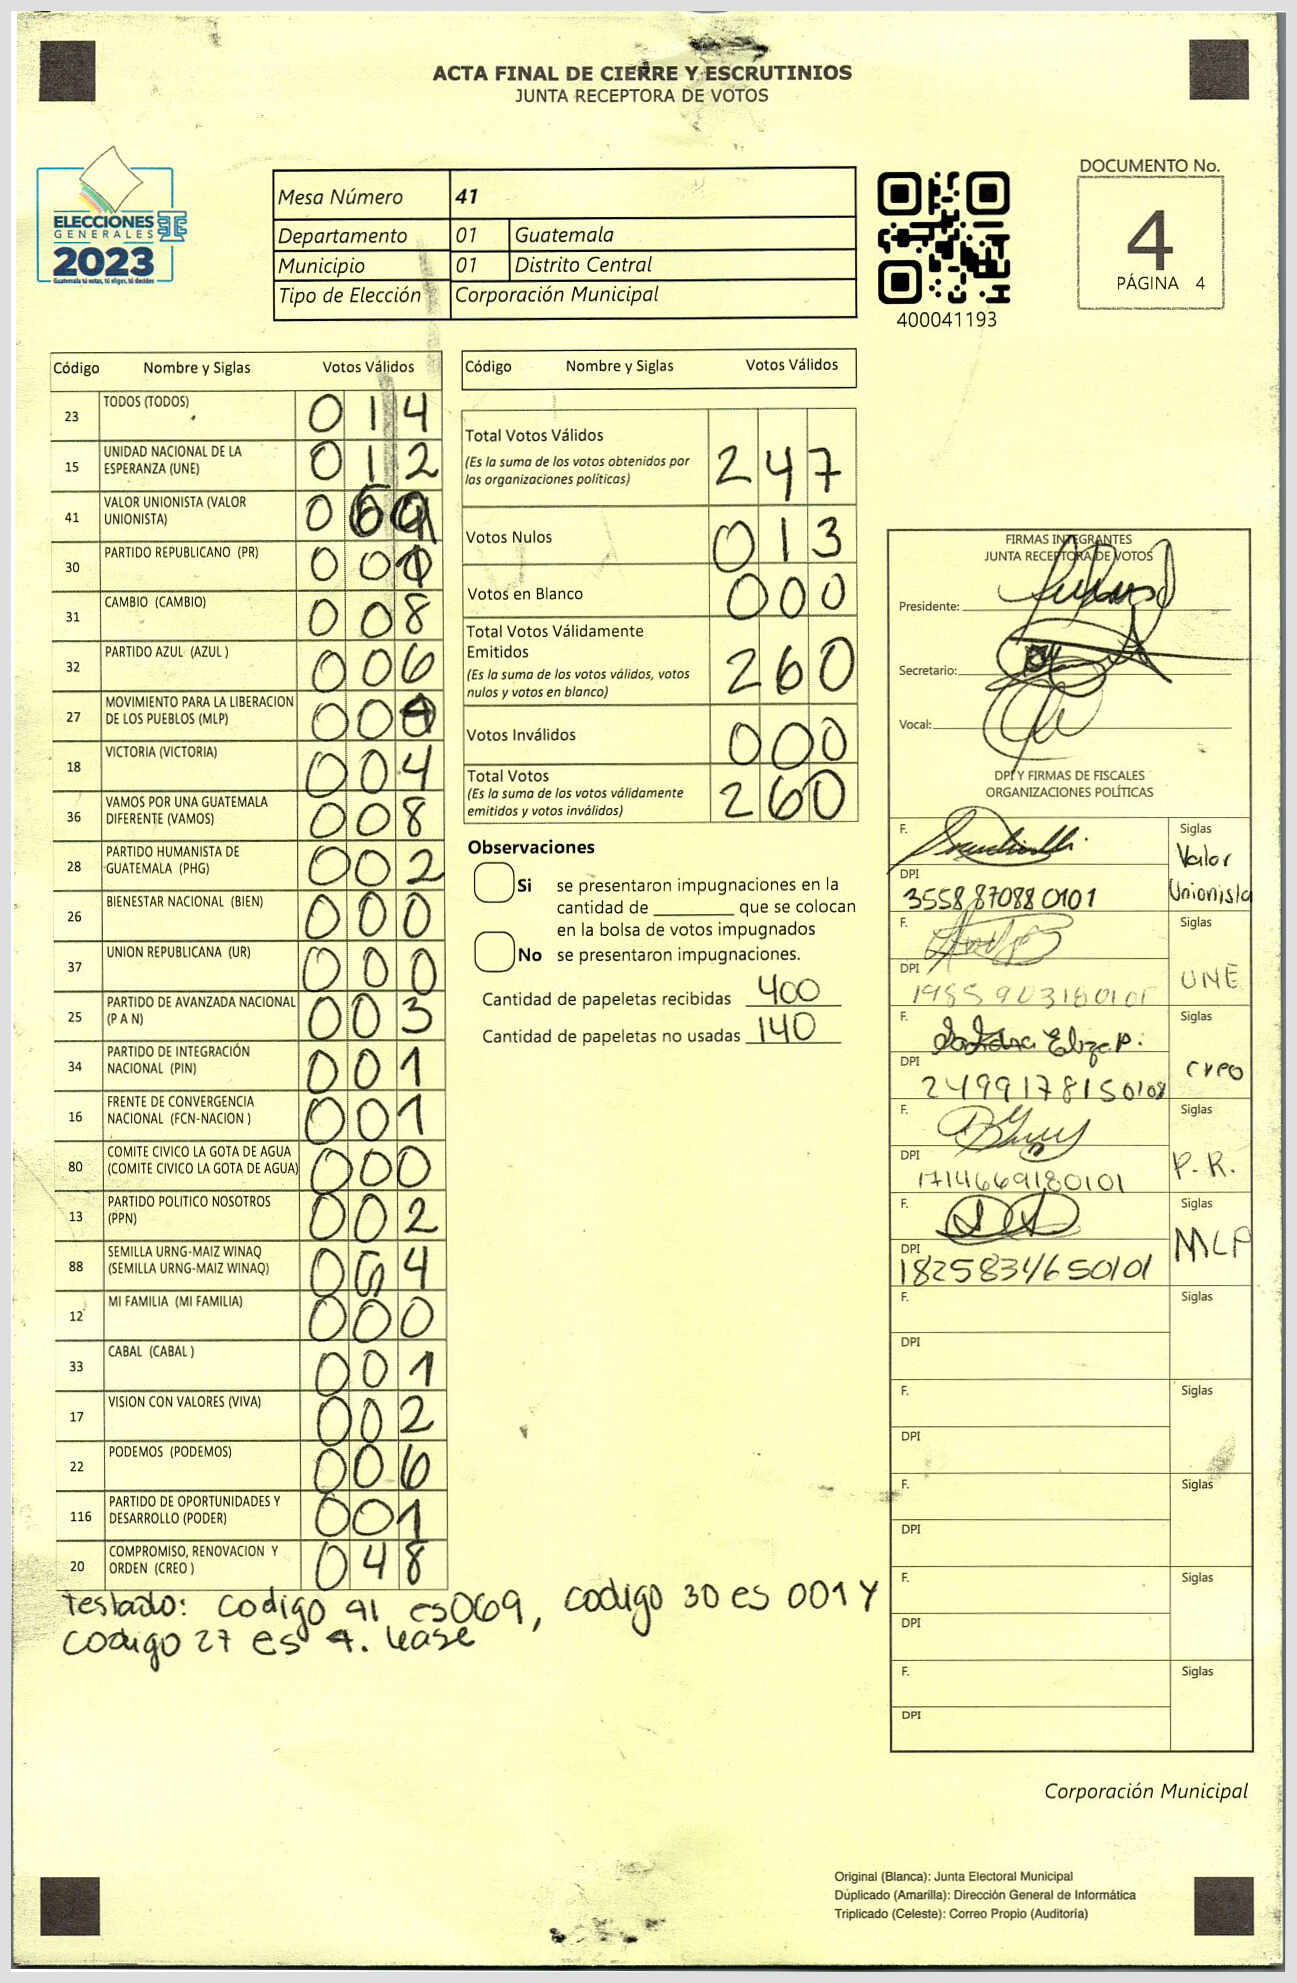 ACTA FINAL DE CIERRE Y ESCRUTINIOS
JUNTA RECEPTORA DE VOTOS
ELECCIONES
GENERALES
2023
Guatemala tú votas, tú eliges, tú decides
Mesa Número 41
Departamento 01 Guatemala
Municipio 01 Distrito Central
Tipo de Elección Corporación Municipal
400041193
DOCUMENTO No.
4
PÁGINA 4
Código Nombre y Siglas Votos Válidos
23 TODOS (TODOS) 014
15 UNIDAD NACIONAL DE LA ESPERANZA (UNE) 012
41 VALOR UNIONISTA (VALOR UNIONISTA) 069
30 PARTIDO REPUBLICANO (PR) 001
31 CAMBIO (CAMBIO) 008
32 PARTIDO AZUL (AZUL ) 006
27 MOVIMIENTO PARA LA LIBERACION DE LOS PUEBLOS (MLP) 004
18 VICTORIA (VICTORIA) 004
36 VAMOS POR UNA GUATEMALA DIFERENTE (VAMOS) 008
28 PARTIDO HUMANISTA DE GUATEMALA (PHG) 002
26 BIENESTAR NACIONAL (BIEN) 000
37 UNION REPUBLICANA (UR) 000
25 PARTIDO DE AVANZADA NACIONAL (P A N) 003
34 PARTIDO DE INTEGRACIÓN NACIONAL (PIN) 001
16 FRENTE DE CONVERGENCIA NACIONAL (FCN-NACION ) 001
80 COMITE CIVICO LA GOTA DE AGUA (COMITE CIVICO LA GOTA DE AGUA) 000
13 PARTIDO POLITICO NOSOTROS (PPN) 002
88 SEMILLA URNG-MAIZ WINAQ (SEMILLA URNG-MAIZ WINAQ) 054
12 MI FAMILIA (MI FAMILIA) 000
33 CABAL (CABAL ) 001
17 VISION CON VALORES (VIVA) 002
22 PODEMOS (PODEMOS) 006
116 PARTIDO DE OPORTUNIDADES Y DESARROLLO (PODER) 001
20 COMPROMISO, RENOVACION Y ORDEN (CREO ) 048
Testado: Codigo 41 es 069, codigo 30 es 001 Y
Codigo 27 es 4. lease
Código Nombre y Siglas Votos Válidos
Total Votos Válidos 247
(Es la suma de los votos obtenidos por
las organizaciones políticas)
Votos Nulos 013
Votos en Blanco 000
Total Votos Válidamente
Emitidos 260
(Es la suma de los votos válidos, votos
nulos y votos en blanco)
Votos Inválidos 000
Total Votos 260
(Es la suma de los votos válidamente
emitidos y votos inválidos)
Observaciones
Si se presentaron impugnaciones en la
cantidad de ________ que se colocan
en la bolsa de votos impugnados
No se presentaron impugnaciones.
Cantidad de papeletas recibidas 400
Cantidad de papeletas no usadas 140
FIRMAS INTEGRANTES
JUNTA RECEPTORA DE VOTOS
Presidente:
Secretario:
Vocal:
DPI Y FIRMAS DE FISCALES
ORGANIZACIONES POLÍTICAS
F. Siglas
Valor
Unionista
DPI
3558870880101
F. Siglas
UNE
DPI
F. Siglas
creo
DPI
2499178150108
F. Siglas
P.R.
DPI
1714669180101
F. Siglas
MLP
DPI
1825834650101
F. Siglas
DPI
F. Siglas
DPI
F. Siglas
DPI
F. Siglas
DPI
F. Siglas
DPI
Corporación Municipal
Original (Blanca): Junta Electoral Municipal
Dúplicado (Amarilla): Dirección General de Informática
Triplicado (Celeste): Correo Propio (Auditoría)